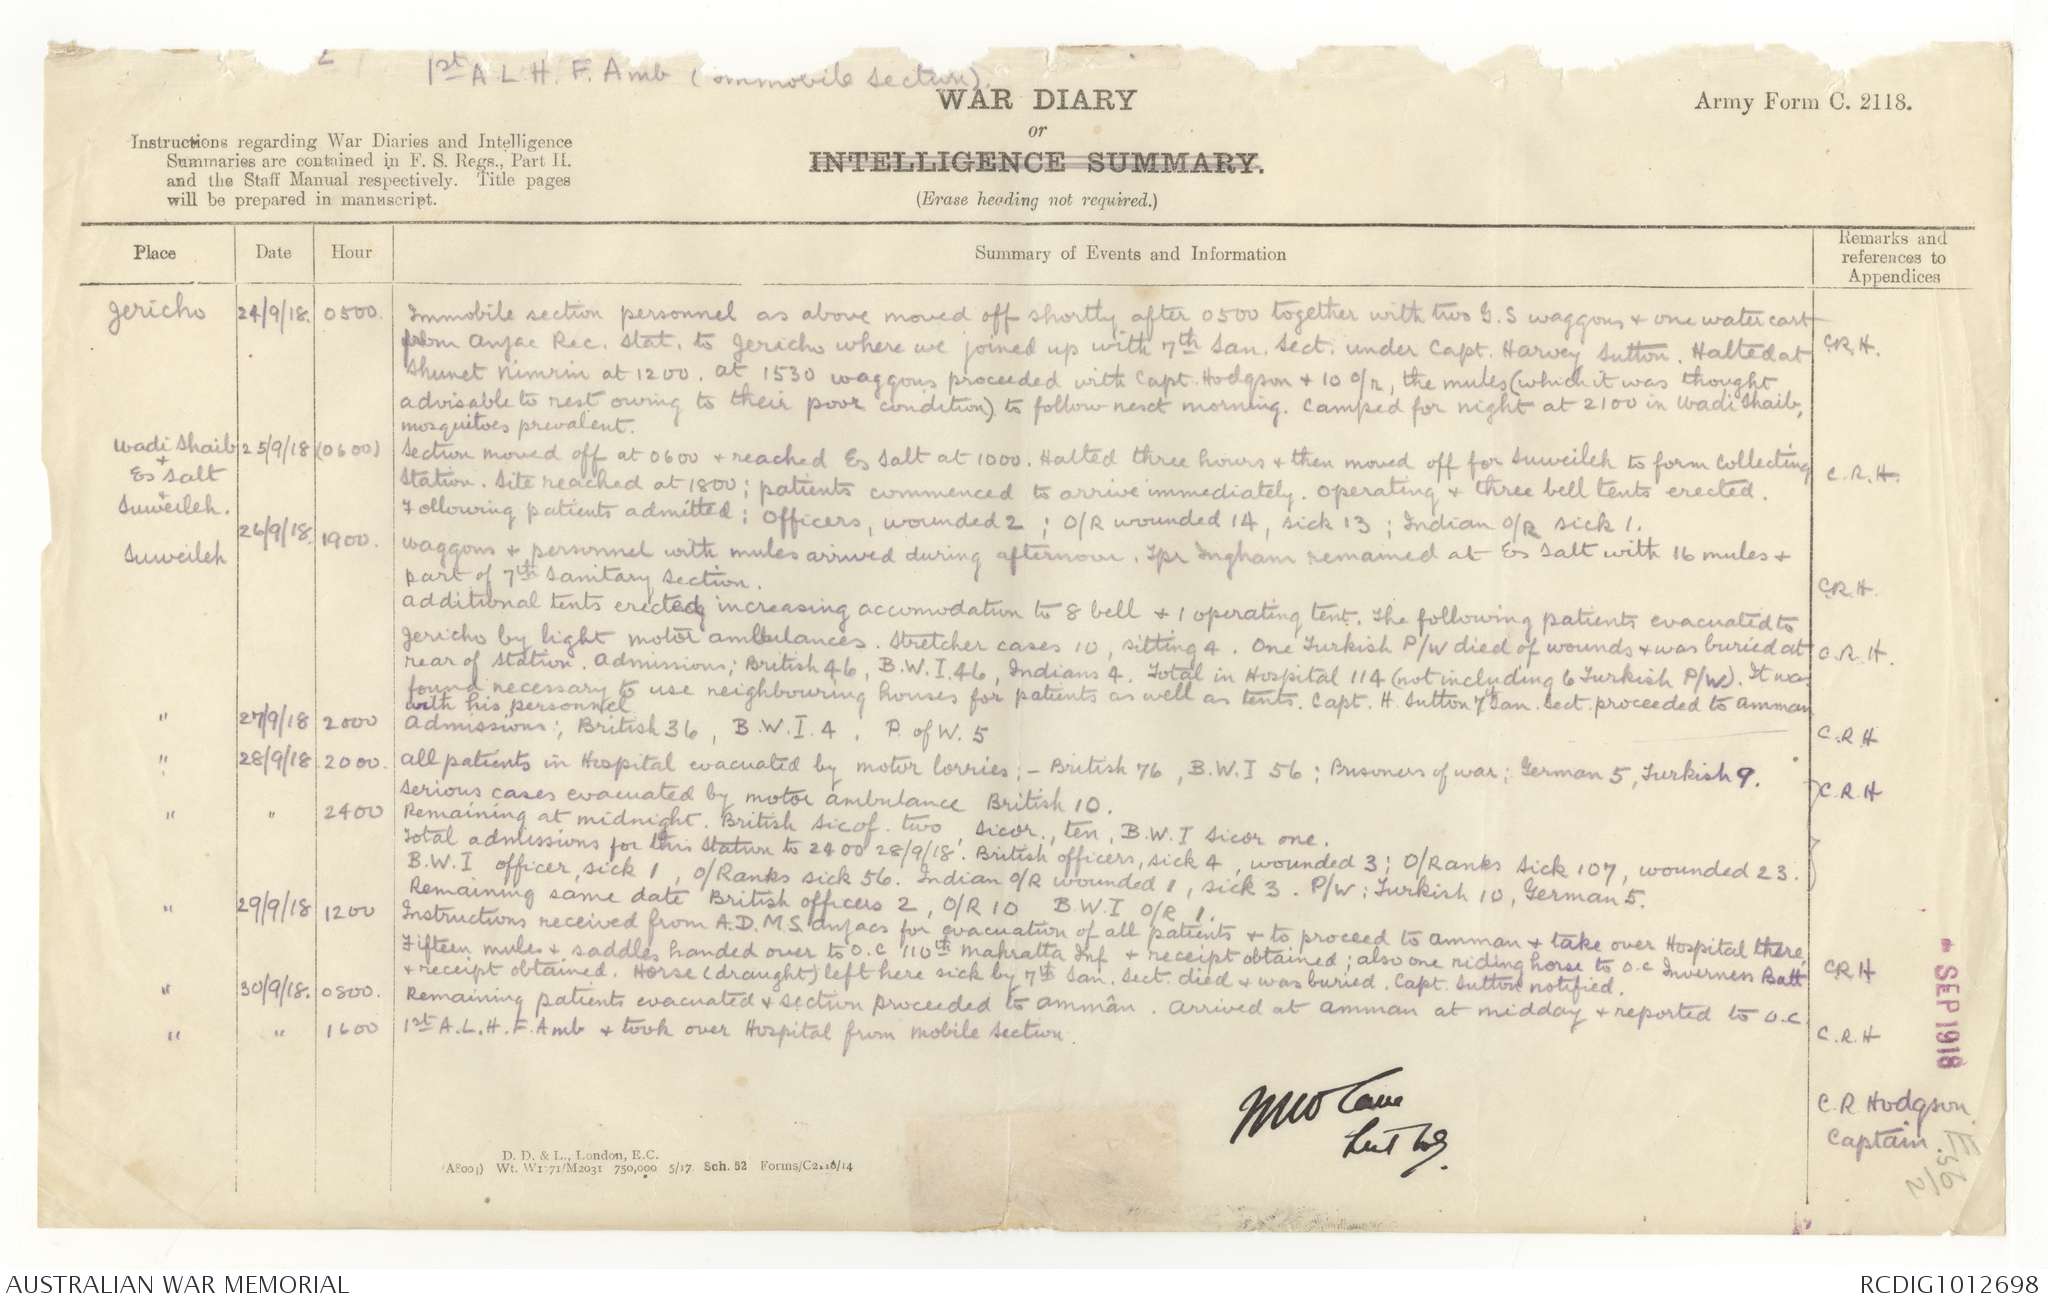 1st A L. H. F. Amb (immobile section).
WAR DIARY
or
INTELLIGENCE SUMMARY.
(Erase heading not required.)
Army Form C. 2118.
Instructions regarding War Diaries and Intelligence
Summaries are contained in F. S. Regs., Part II.
and the Staff Manual respectively. Title pages
will be prepared in manuscript.
Place Date Hour Summary of Events and Information Remarks and references to Appendices
Jericho 24/9/18. 0500. Immobile section personnel as above moved off shortly after 0500 together with two G.S waggons & one water cart
from Anzac Rec. Stat. to Jericho where we joined up with 7th San. Sect. under Capt. Harvey Sutton. Halted at C.R.H.
Shunet Nimrin at 1200. At 1530 waggons proceeded with Capt. Hodgson & 10 O/R, the mules (which it was thought
advisable to rest owing to their poor condition) to follow next morning. Camped for night at 2100 in Wadi Shaib,
mosquitoes prevalent.
Wadi Shaib 25/9/18 (0600) Section moved off at 0600 & reached Es Salt at 1000. Halted three hours & then moved off for Suweileh to form Collecting
+ Es Salt Station. Site reached at 1800; patients commenced to arrive immediately. Operating & three bell tents erected. C.R.H.
+ Suweileh. Following patients admitted; Officers, wounded 2; O/R wounded 14, sick 13; Indian O/R sick 1.
Suweileh 26/9/18. 1900. Waggons & personnel with mules arrived during afternoon. Tpr Ingham remained at Es Salt with 16 mules &
part of 7th Sanitary Section. C.R.H.
Additional tents erected increasing accomodation to 8 bell & 1 operating tent. The following patients evacuated to
Jericho by light motor ambulances. Stretcher cases 10, sitting 4. One Turkish P/W died of wounds & was buried at C.R.H.
rear of station. Admissions; British 46, B.W.I. 46, Indians 4. Total in Hospital 114 (not including 6 Turkish P/W). It was
found necessary to use neighbouring houses for patients as well as tents. Capt. H. Sutton 7th San. Sect. proceeded to Amman
with his personnel
" 27/9/18 2000 Admissions; British 36, B.W.I. 4. P. of W. 5 C.R.H
" 28/9/18 2000. All patients in Hospital evacuated by motor lorries; - British 76, B.W.I 56; Prisoners of war; German 5, Turkish 9.
Serious cases evacuated by motor ambulance British 10. C.R.H
" " 2400 Remaining at midnight. British sicof. two, sicor., ten, B.W.I sicor one.
Total admissions for this station to 2400 28/9/18. British officers, sick 4, wounded 3; O/Ranks sick 107, wounded 23.
B.W.I officer, sick 1, O/Ranks sick 56. Indian O/R wounded 1, sick 3. P/W; Turkish 10, German 5.
Remaining same date British officers 2, O/R 10 B.W.I O/R 1.
" 29/9/18 1200 Instructions received from A.D.M.S. Anzacs for evacuation of all patients & to proceed to Amman & take over Hospital there.
Fifteen mules & saddles handed over to O.C 110th Mahratta Inf & receipt obtained; also one riding horse to O.C Inverness Batt
& receipt obtained. Horse (draught) left here sick by 7th San. Sect. died & was buried. Capt. Sutton notified. C.R.H
" 30/9/18. 0800. Remaining patients evacuated & section proceeded to Amman. Arrived at Amman at midday & reported to O.C
" " 1600 1st A.L.H.F. Amb & took over Hospital from mobile section. C.R.H
C.R Hodgson
Captain.
SEP 1918
D. D. & L., London, E.C.
Sch. 52
AUSTRALIAN WAR MEMORIAL
RCDIG1012698